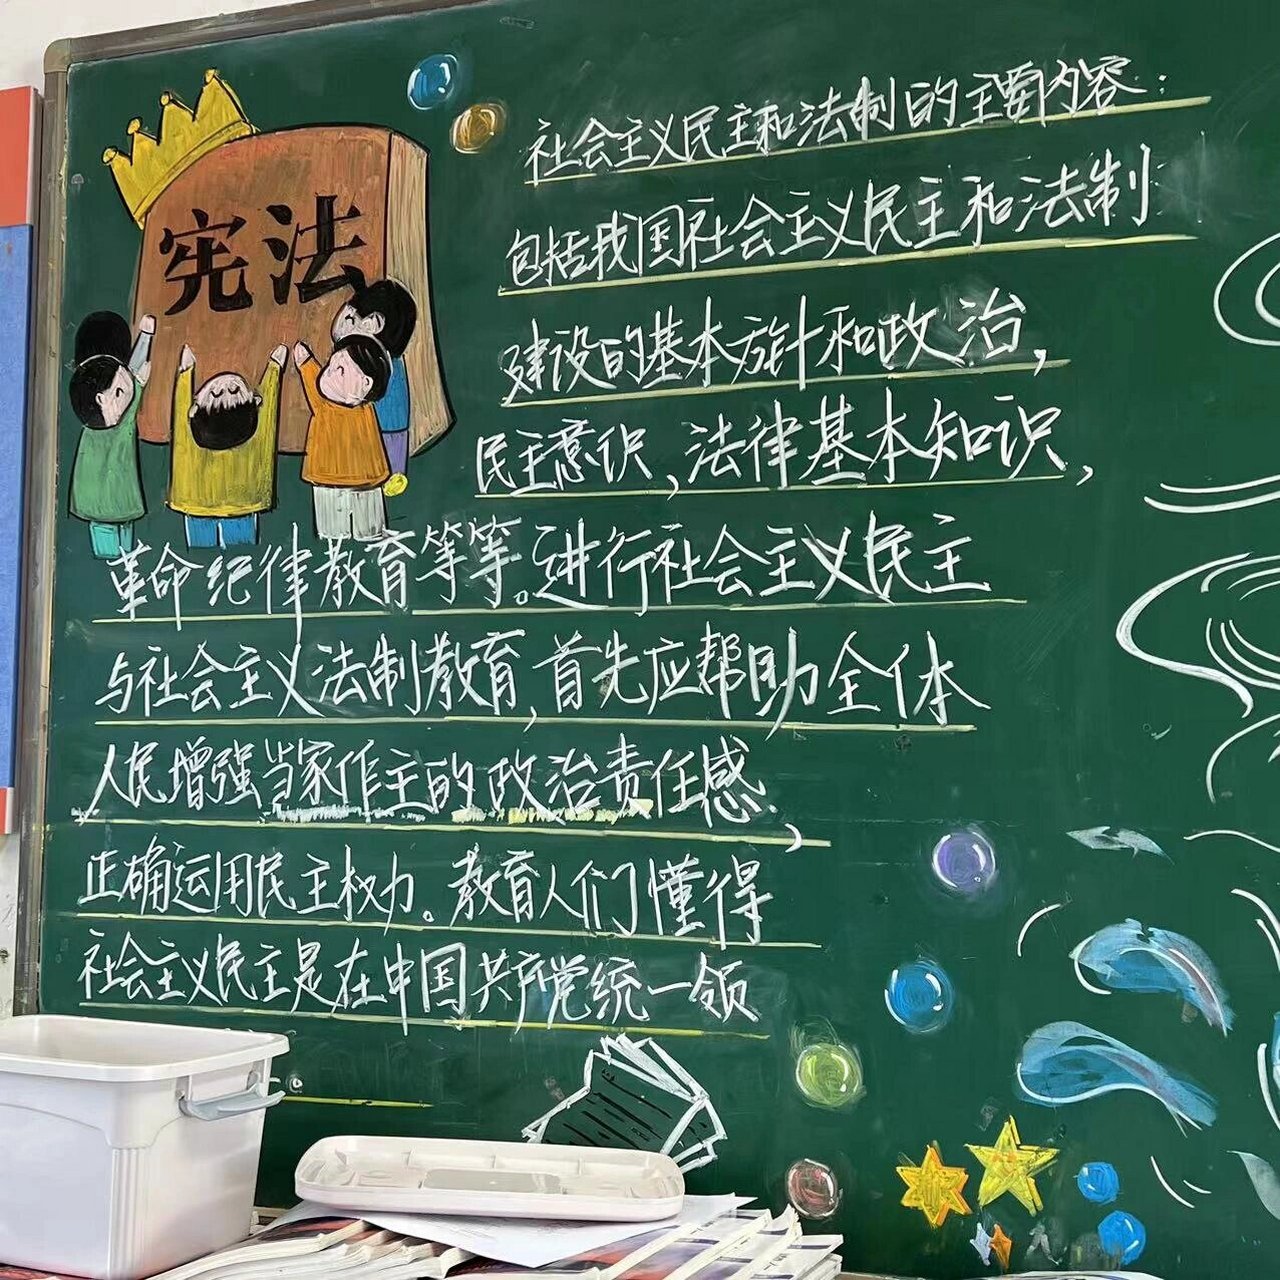 宪法
社会主义民主和法制的主要内容：
包括我国社会主义民主和法制
建设的基本方针和政治，
民主意识，法律基本知识，
革命纪律教育等等。进行社会主义民主
与社会主义法制教育，首先应帮助全体
人民增强当家作主的政治责任感，
正确运用民主权力。教育人们懂得
社会主义民主是在中国共产党统一领